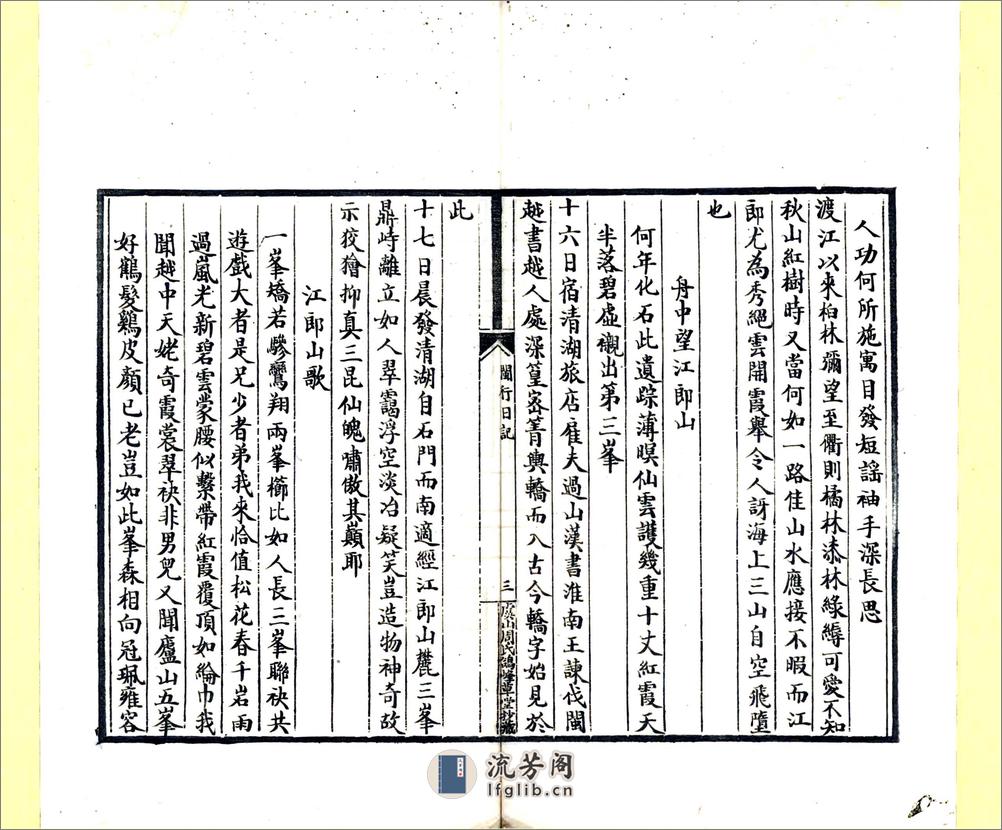 人功何所施寓目發短謡袖手深長思
渡江以來柏林彌望至衢則橘林漆林綠縟可愛不知
秋山紅樹時又當何如一路佳山水應接不暇而江
郎尤為秀絕雲開霞舉令人訝海上三山自空飛墮
也
舟中望江郎山
何年化石此遺踪薄暝仙雲護幾重十丈紅霞天
半落碧虛襯出第三峯
十六日宿清湖旅店雇夫過山漢書淮南王諫伐閩
越書越人處深篁密菁輿轎而入古今轎字始見於
此
閩行日記
三
虞山周氏鴿峰草堂抄藏
十七日晨發清湖自石門而南適經江郎山麓三峯
鼎峙離立如人翠靄浮空淡冶疑笑豈造物神奇故
示狡獪抑真三昆仙魄嘯傲其巔耶
江郎山歌
一峯矯若驂鸞翔兩峯櫛比如人長三峯聯袂共
遊戲大者是兄少者弟我來恰值松花春千岩雨
過嵐光新碧雲蒙腰似繫帶紅霞覆頂如綸巾我
聞越中天姥奇霞裳翠袂非男兒又聞廬山五峯
好鶴髮雞皮顏已老豈如此峯森相向冠珮雍容
流芳阁
lfglib.cn